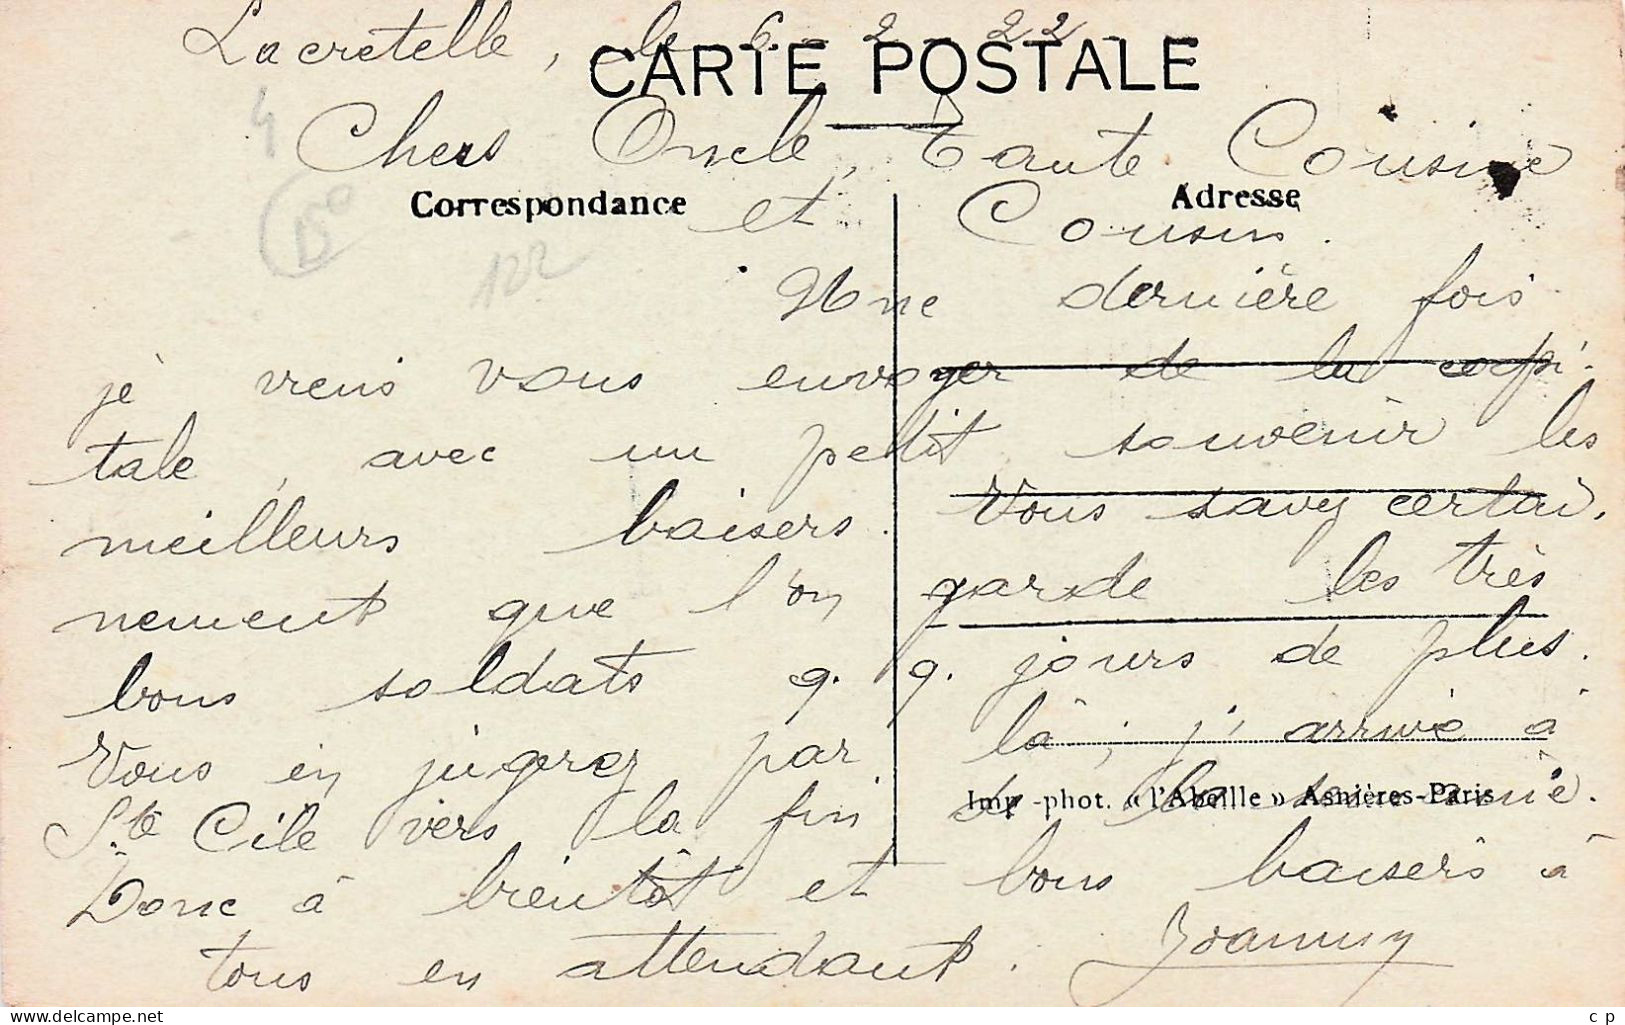 Lacretelle, le 6 - 2 - 22 -
CARTE POSTALE
Chers Oncle, Tante Cousine
Correspondance
Adresse
et Cousin.
122
Une dernière fois
je viens vous envoyer de la capi-
tale, avec un petit souvenir les
meilleurs baisers. Vous savez certai,
nement que l'on garde les très
bons soldats q. q. jours de plus.
Vous en jugerez par là; j'arrive à
Ste Cile vers la fin de la semaine.
Imp-phot. « l'Abeille » Asnières-Paris
Donc à bientôt et bons baisers à
tous en attendant. Joanny
c p